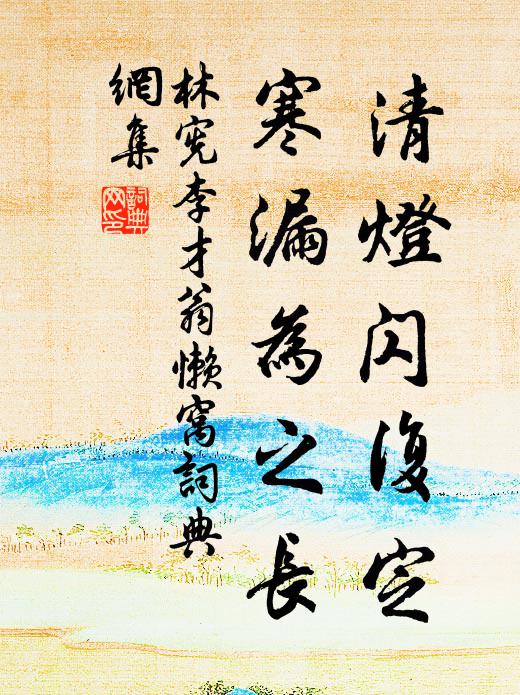 清燈閃復定
寒漏為之長
林宪李才翁懒窩詞典
網集
詞典
网印